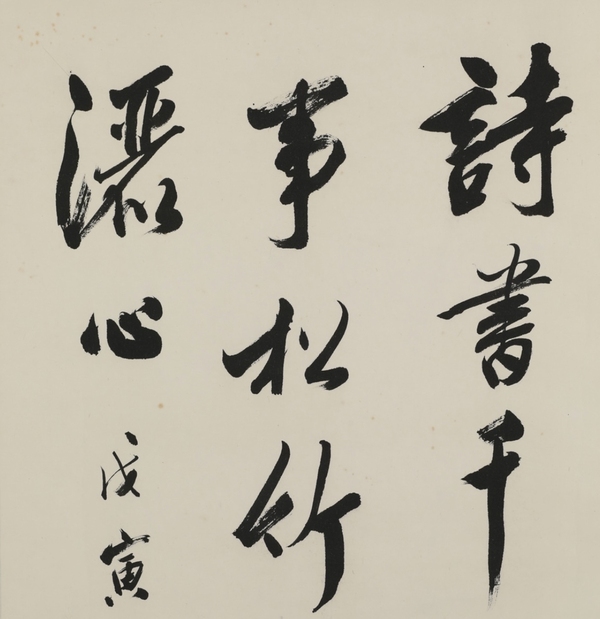 詩書千
事松竹
心戊寅